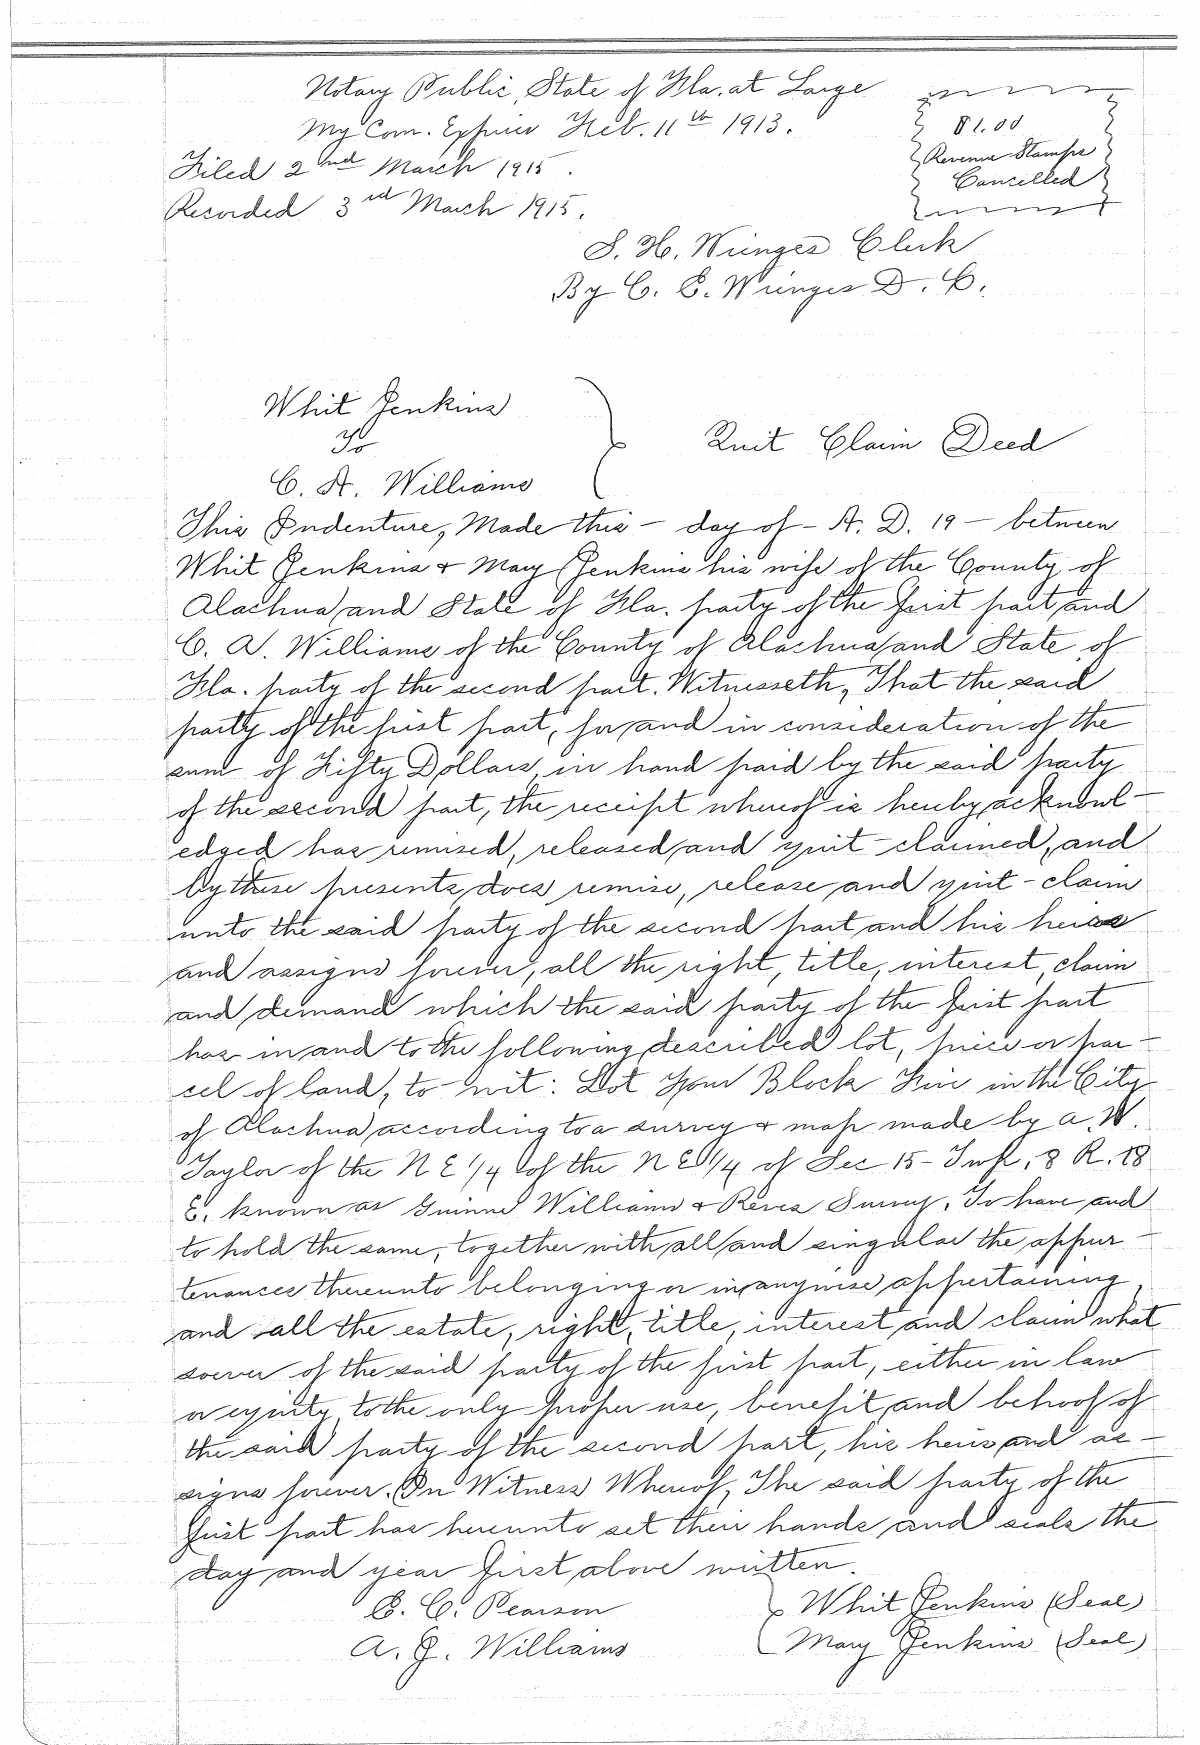 Notary Public, State of Fla. at Large
My Com. Expires Feb. 11th 1913.
$1.00
Revenue Stamps
Cancelled
Filed 2nd March 1915.
Recorded 3rd March 1915.
S. H. Wienges Clerk
By C. E. Wienges D. C.
Whit Jenkins
To
C. A. Williams
Quit Claim Deed
This Indenture, Made this - day of - A. D. 19 - between
Whit Jenkins & Mary Jenkins his wife of the County of
Alachua and State of Fla. party of the first part and
C. A. Williams of the County of Alachua and State of
Fla. party of the second part. Witnesseth, That the said
party of the first part, for and in consideration of the
sum of Fifty Dollars, in hand paid by the said party
of the second part, the receipt whereof is hereby acknowl-
edged has remised, released and quit-claimed, and
by these presents does remise, release and quit-claim
unto the said party of the second part and his heirs
and assigns forever, all the right, title, interest, claim
and demand which the said party of the first part
has in and to the following described lot, piece or par-
cel of land, to-wit: Lot Four Block Five in the City
of Alachua according to a survey & map made by A. W.
Taylor of the N E 1/4 of the N E 1/4 of Sec 15 - Twp. 8 R. 18
E. known as Williams & Survey. To have and
to hold the same, together with all and singular the appur-
tenances thereunto belonging or in anywise appertaining,
and all the estate, right, title, interest and claim what
soever of the said party of the first part, either in law
or equity, to the only proper use, benefit and behoof of
the said party of the second part, his heirs and as-
signs forever. In Witness Whereof, The said party of the
first part has hereunto set their hands and seals the
day and year first above written.
E. C. Pearson
A. J. Williams
Whit Jenkins (Seal)
Mary Jenkins (Seal)